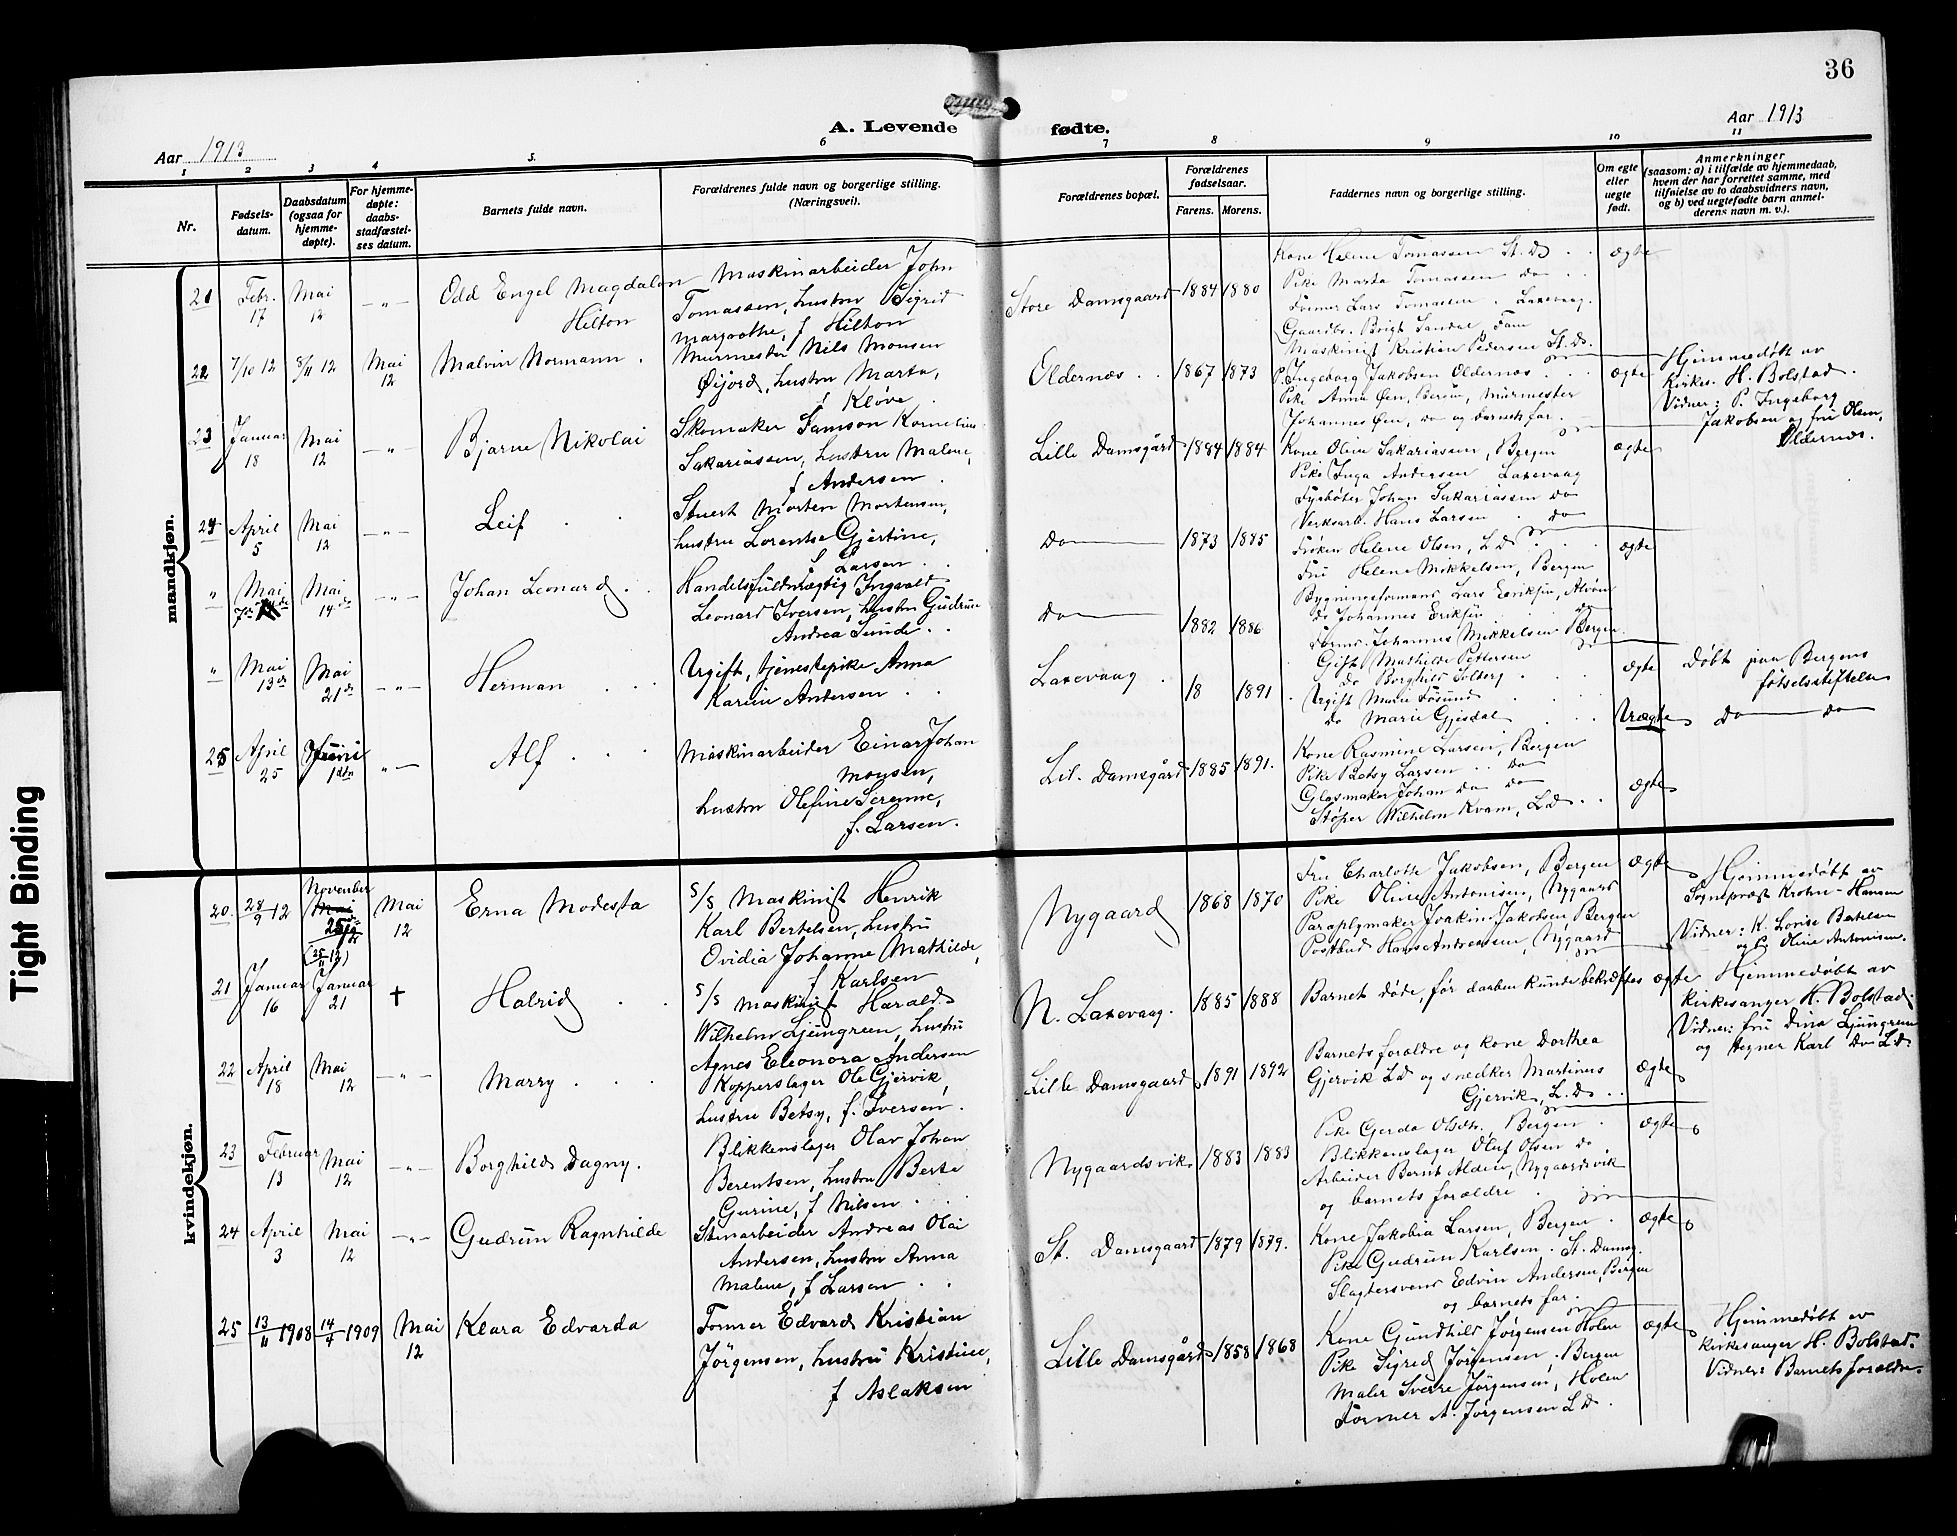 36
A. Levende fødte.
Aar 1913
Aar 1913
1
2
3
4
5.
6
7
8
9
10
11
Nr.
Fødsels-
datum.
Daabsdatum
(ogsaa for
hjemme-
døpte).
For hjemme-
døpte:
daabs-
stadfæstel-
ses datum.
Barnets fulde navn.
Forældrenes fulde navn og borgerlige stilling.
(Næringsvei).
Forældrenes bopæl.
Forældrenes
fødselsaar.
Farens. Morens.
Faddernes navn og borgerlige stilling.
Om egte
eller
uegte
født.
Anmerkninger
(saasom: a) i tilfælde av hjemmedaab,
hvem der har forrettet samme, med
tilføielse av to daabsvidners navn,
og b) ved uegtefødte barn anmel-
derens navn m. v.).
mandkjøn.
21 Febr. 17 Mai 12 - " - Odd Engel Magdalon Hilton
Maskinarbeider John
Tomassen, hustru Sigrid
Margothe, f Hilton
Store Damsgaard 1884 1880
Kone Helene Tomassen St. D
Pike Marta Tomassen do
Former Lars Tomassen Laxevaag
Gaardbr. Brigt Sandal, Fane
Maskinist Kristian Pedersen St. D.
ægte
22 7/10 12 8/11 12 Mai 12 Malvin Normann
Murmester Nils Monsen
Øijord, hustru Marta,
f Kløve
Oldernæs 1867 1873
P. Ingeborg Jakobsen Oldernæs
Pike Anna Øen, Bergen, Murmester
Johannes Øen, do og barnets far.
ægte
Hjemmedøbt av
Kirkes. H. Bolstad.
Vidner: P. Ingeborg
Jakobsen og fru Olsen,
Oldernæs.
23 Januar 18 Mai 12 - " - Bjarne Nikolai
Skomaker Samson Kornelius
Sakariassen, hustru Malene,
f Andersen
Lille Damsgård 1884 1884
Kone Oline Sakariassen, Bergen
Pike Inga Andersen Laxevaag
Fyrbøter Johan Sakariassen do
Verksarb. Hans Larsen do
ægte
24 April 5 Mai 12 - " - Leif
Stuert Morten Mortensen,
hustru Lorentse Gjertine,
f Larsen
Do 1873 1885
Frøken Helene Olsen, L D
Fru Helene Mikkelsen, Bergen
Bygningsformand Lars Eriksen, Alvøen
Do Johannes Eriksen
Former Johannes Mikkelsen Bergen
ægte
" Mai 7de Mai 14de - " - Johan Leonard
Handelsfuldmægtig Ingvald
Leonard Iversen, hustru Gudrun
Andrea Sunde
Do 1882 1886
Gift Mathilde Pettersen
Do Borghild Solberg
ægte
Døbt paa Bergens
fødselsstiftelse
" Mai 13de Mai 21de - " - Herman
Ugift, tjenestepike Anna
Karine Andersen
Laxevaag 18 1891
Ugift Marie Fosund
do Marie Gjesdal
Uægte
Do Do
25 April 25 1ste " - Alf
Maskinarbeider Einar Johan
Monsen,
hustru Olefine Serenne,
f. Larsen.
Lil. Damsgård 1885 1891.
Kone Rasmine Larsen, Bergen
Pike Betsy Larsen do
Glasmaker Johan do do
Støper Wilhelm Kvam, L.D
ægte
kvindekjøn.
20. 28/9 12 November Mai 25de (25/11 12) Mai 12 Erna Modesta
S/S Maskinist Henrik
Karl Bertelsen, hustru
Ovidia Johanne Mathilde,
f Karlsen
Nygaard 1868 1870
Fru Charlotte Jakobsen, Bergen
Pike Oline Antonisen, Nygaard
Paraplymaker Joakim Jakobsen Bergen
Postbud Hans Andreassen, Nygaard
ægte
Hjemmedøbt av
Sogneprest Krohn-Hansen
Vidner: K. Lovise Bertelsen
og P. Oline Antonisen.
21 Januar 16 Januar 21 † Halrid
S/S Maskinist Harald
Wilhelm Ljungreen, hustru
Agnes Eleonora Andersen
N. Laxevaag. 1885 1888
Barnet døde, før daaben kunde bekræftes
ægte
Hjemmedøbt av
kirkesanger H. Bolstad.
Vidner: fru Dina Ljungreen
og tegner Karl Do L D.
22 April 18 Mai 12 - " - Marry
Kopperslager Ole Gjervik,
hustru Betsy, f. Iversen.
Lille Damsgaard 1891 1892
Barnets forældre og kone Dorthea
Gjervik L D og snedker Martinus
Gjervik, L. D
ægte
23 Februar 13 Mai 12 - " - Borghild Dagny.
Blikkenslager Olav Johan
Berentsen, hustru Berta
Gurine, f Nilsen
Nygaardsvik 1883 1883
Pike Gerda Olsen, Bergen
Blikkenslager Oluf Olsen do
Arbeider Bernt Alden, Nygaardsvik
og barnets forældre
ægte
24 April 3 Mai 12 - " - Gudrun Ragnhilde
Stenarbeider Andreas Olai
Andersen, hustru Anna
Malene, f Larsen
St. Damsgaard 1879 1879.
Kone Jakobia Larsen, Bergen
Pike Gudrun Karlsen. St. Damsg.
Slagtersvend Edvin Andersen, Bergen
og barnets far.
ægte
25 13/11 1908 14/4 1909 Mai 12 Klara Edvarda
Former Edvard Kristian
Jørgensen, hustru Kristine,
f Aslaksen
Lille Damsgård 1858 1868
Kone Gundhild Jørgensen Holen
Pike Sigred Jørgensen, Bergen
Maler Sverre Jørgensen, Holen
Former A. Jørgensen L D.
ægte
Hjemmedøbt av
kirkesanger H. Bolstad.
Vidner: Barnets forældre.
Tight Binding